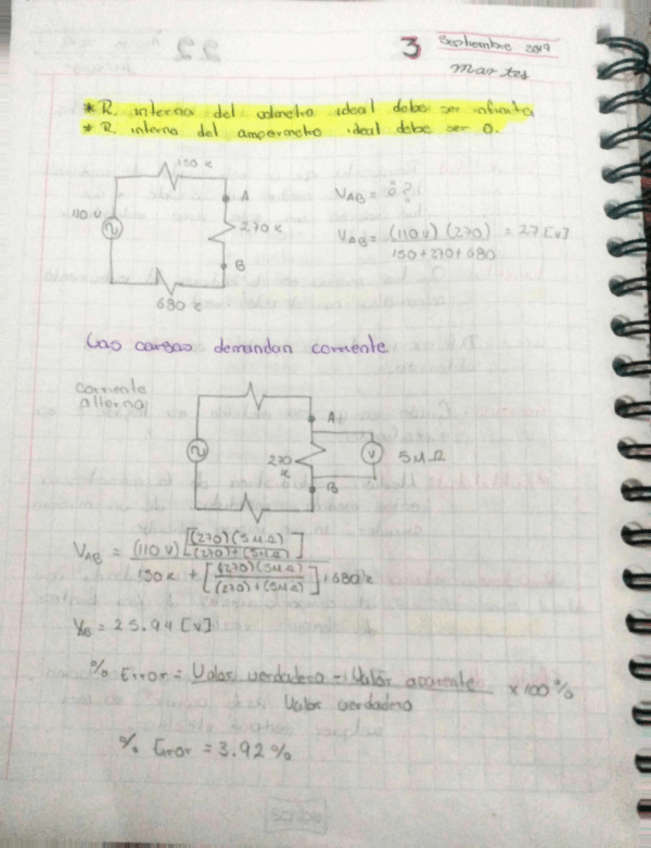 3 Septiembre 2019
Martes
* R. interna del voltmetro ideal debe ser infinita
* R. interna del amperimetro ideal debe ser 0.
150 K
110 V
A
270 K
B
680 K
VAB = ¿?
VAB = (110V)(270) = 27 [V]
150+270+680
Las cargas demandan corriente.
corriente
alterna
A
270
K
V
5MΩ
B
VAB = (110V) [(270)(5MΩ) / (270)+(5MΩ)]
150K + [(270)(5MΩ) / (270)+(5MΩ)] + 680K
VAB = 25.94 [V]
% Error = Valor verdadero - Valor aparente x 100%
Valor verdadero
% Error = 3.92%
scribe